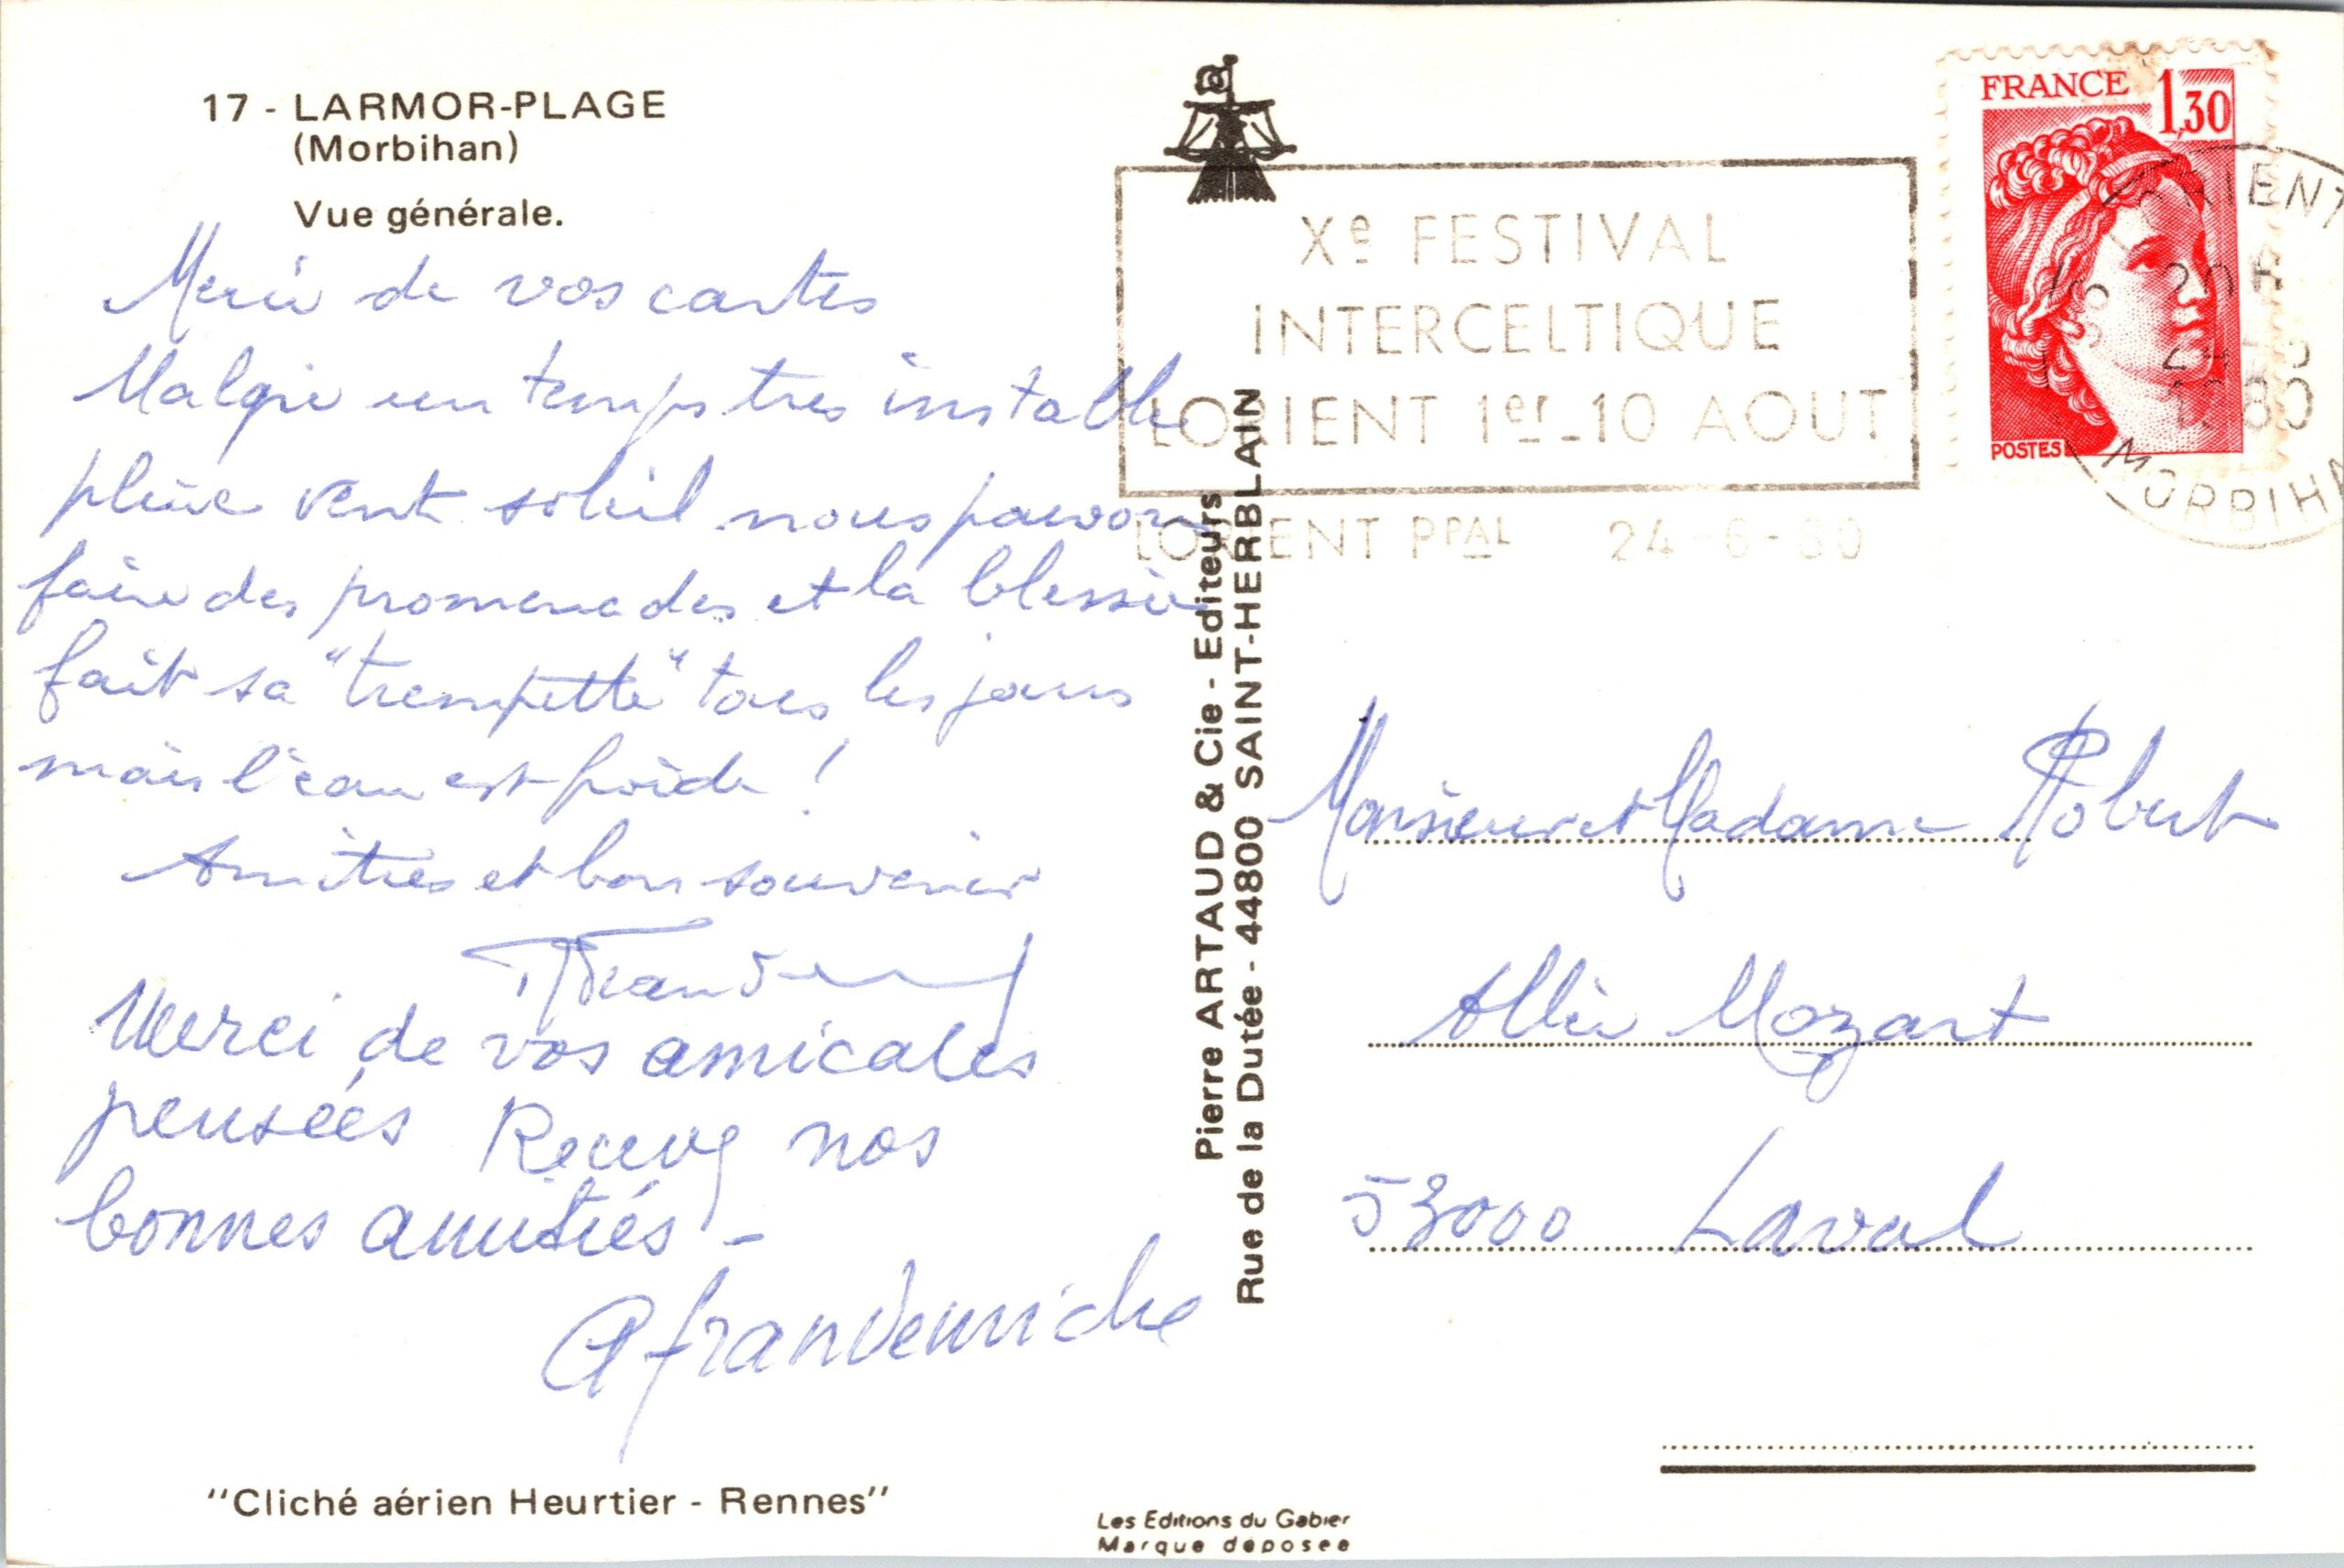 17 - LARMOR-PLAGE
(Morbihan)
Vue générale.
Merci de vos cartes
Malgré un temps très instable
pluie vent soleil nous pouvons
faire des promenades et la blessée
fait sa "trempette" tous les jours
mais l'eau est froide !
Amitiés et bon souvenir
Merci de vos amicales
pensées Recevez nos
bonnes amitiés -
"Cliché aérien Heurtier - Rennes"
Pierre ARTAUD & Cie - Editeurs
Rue de la Dutée - 44800 SAINT-HERBLAIN
Les Editions du Gabier
Marque déposée
Xe FESTIVAL
INTERCELTIQUE
LORIENT 1er_10 AOUT
LORIENT PPAL 24-6-80
FRANCE 1,30
POSTES
LORIENT
16 20H
24-6
1980
MORBIHAN
Monsieur et Madame Robert
Allée Mozart
53000 Laval